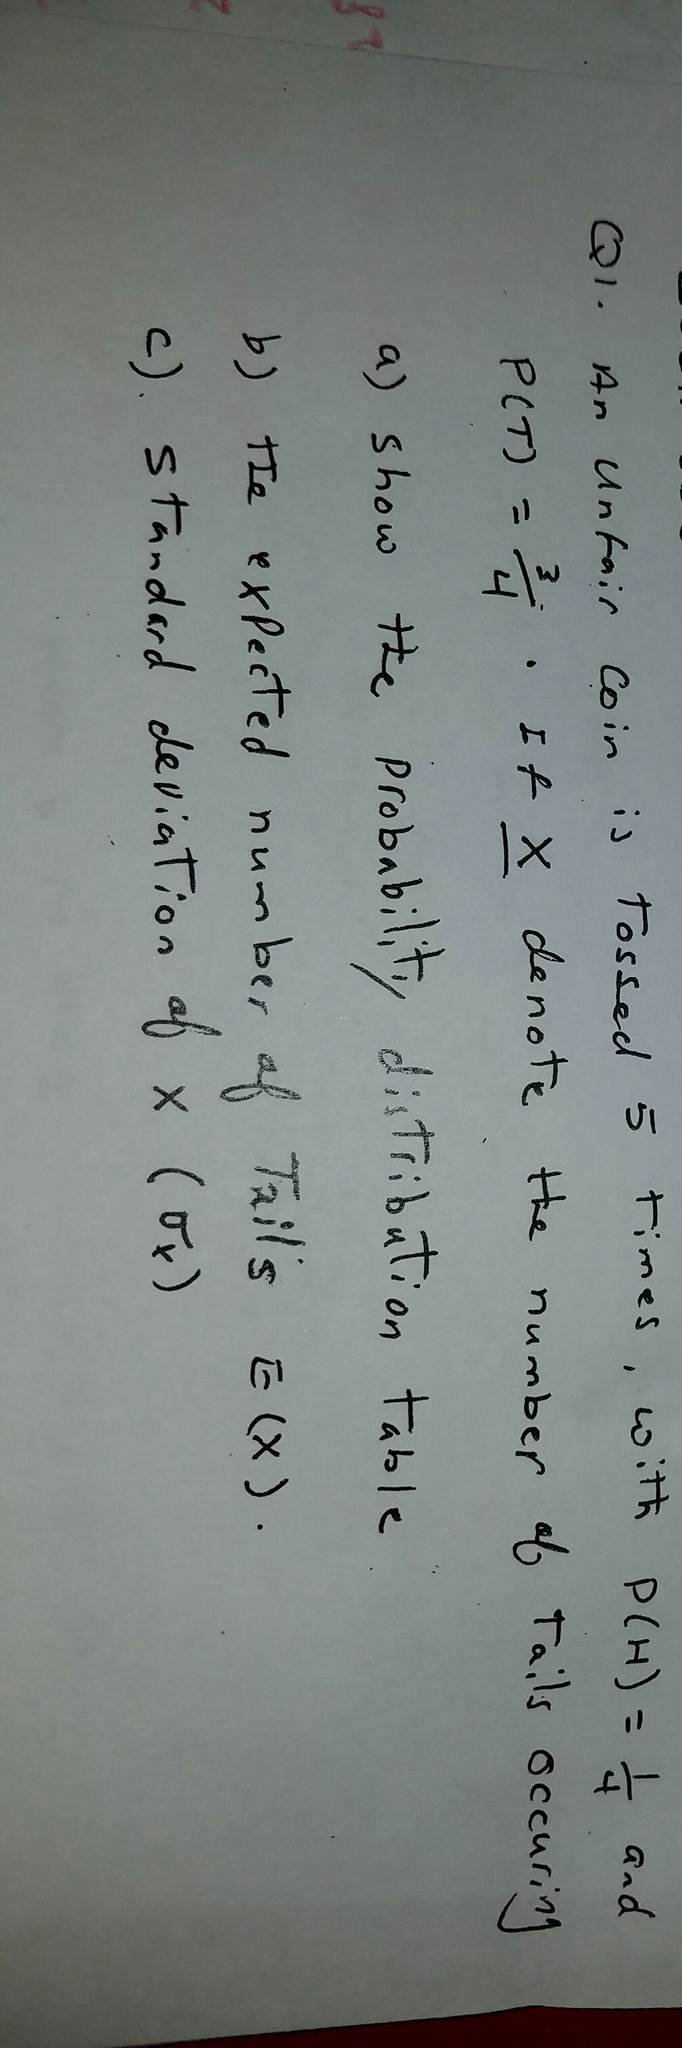 Q1. An unfair coin is tossed 5 times, with P(H) = 1/4 and
P(T) = 3/4. If X denote the number of Tails occuring
a) show the probability distribution table.
b) the expected number of Tails E(X).
c). Standard deviation of X (σx)